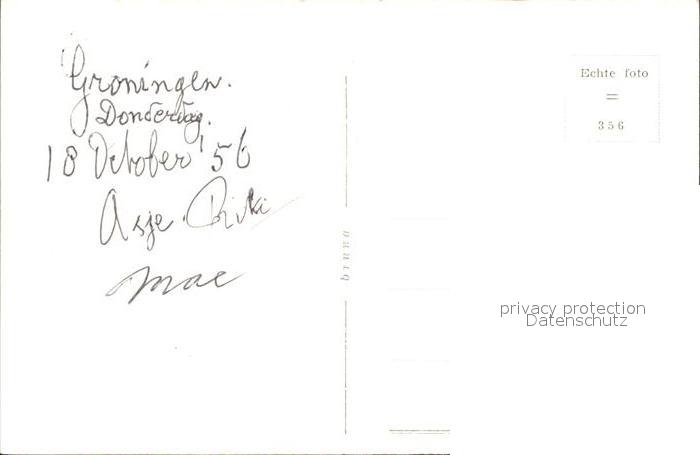 Groningen.
Donderdag.
18 October '56
Asje. Riki
Mae
Echte foto
=
356
privacy protection
Datenschutz